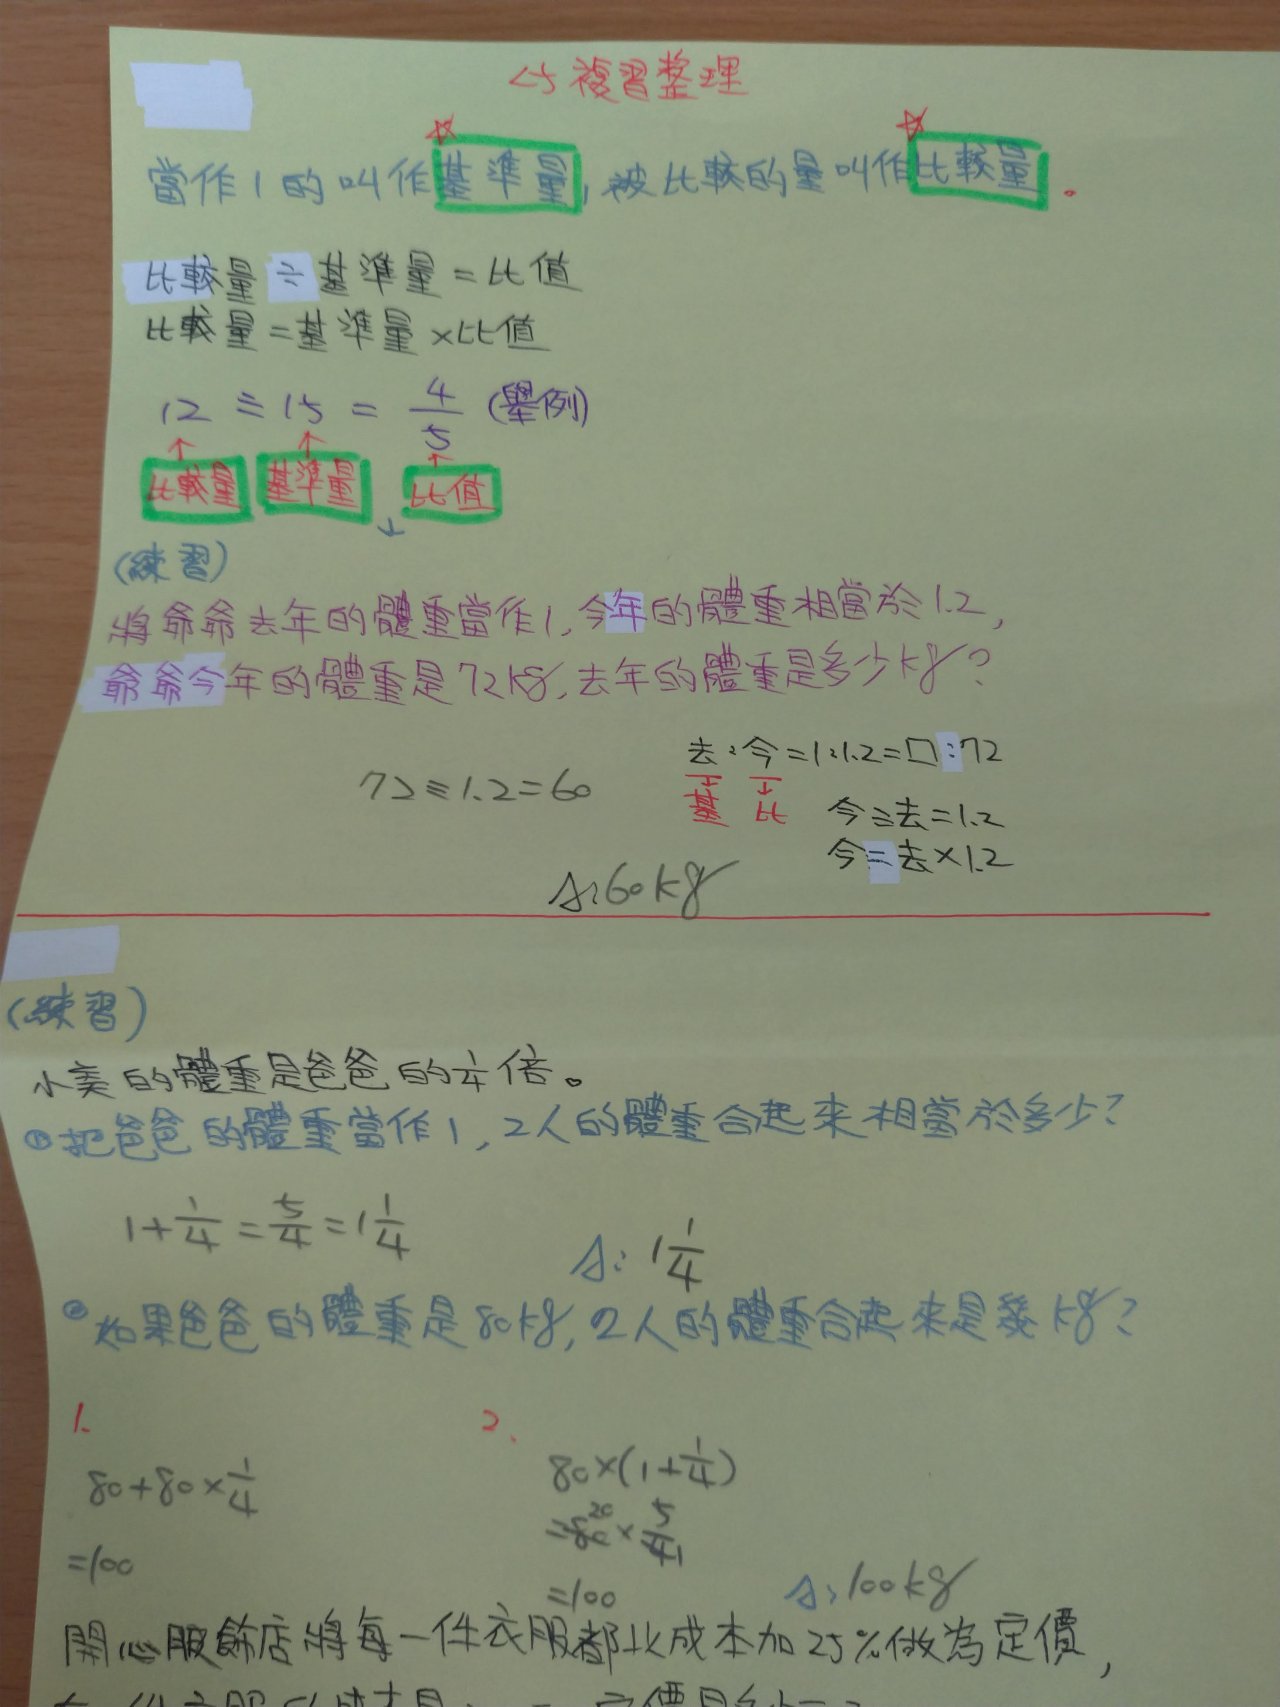 L5複習整理
當作1的叫作基準量,被比較的量叫作比較量。
比較量÷基準量=比值
比較量=基準量×比值
12÷15=4/5(舉例)
比較量 基準量 比值
(練習)
將爺爺去年的體重當作1,今年的體重相當於1.2,
爺爺今年的體重是72kg,去年的體重是多少kg?
去:今=1:1.2=□:72
72÷1.2=60
基 比 今÷去=1.2
今=去×1.2
A:60kg
(練習)
小美的體重是爸爸的1/4倍。
①把爸爸的體重當作1,2人的體重合起來相當於多少?
1+1/4=5/4=1 1/4
A:1 1/4
②如果爸爸的體重是80kg,2人的體重合起來是幾kg?
1. 2.
80+80×1/4 80×(1+1/4)
=80×5/4
=100 =100 A:100kg
開心服飾店將每一件衣服都以成本加25%做為定價,